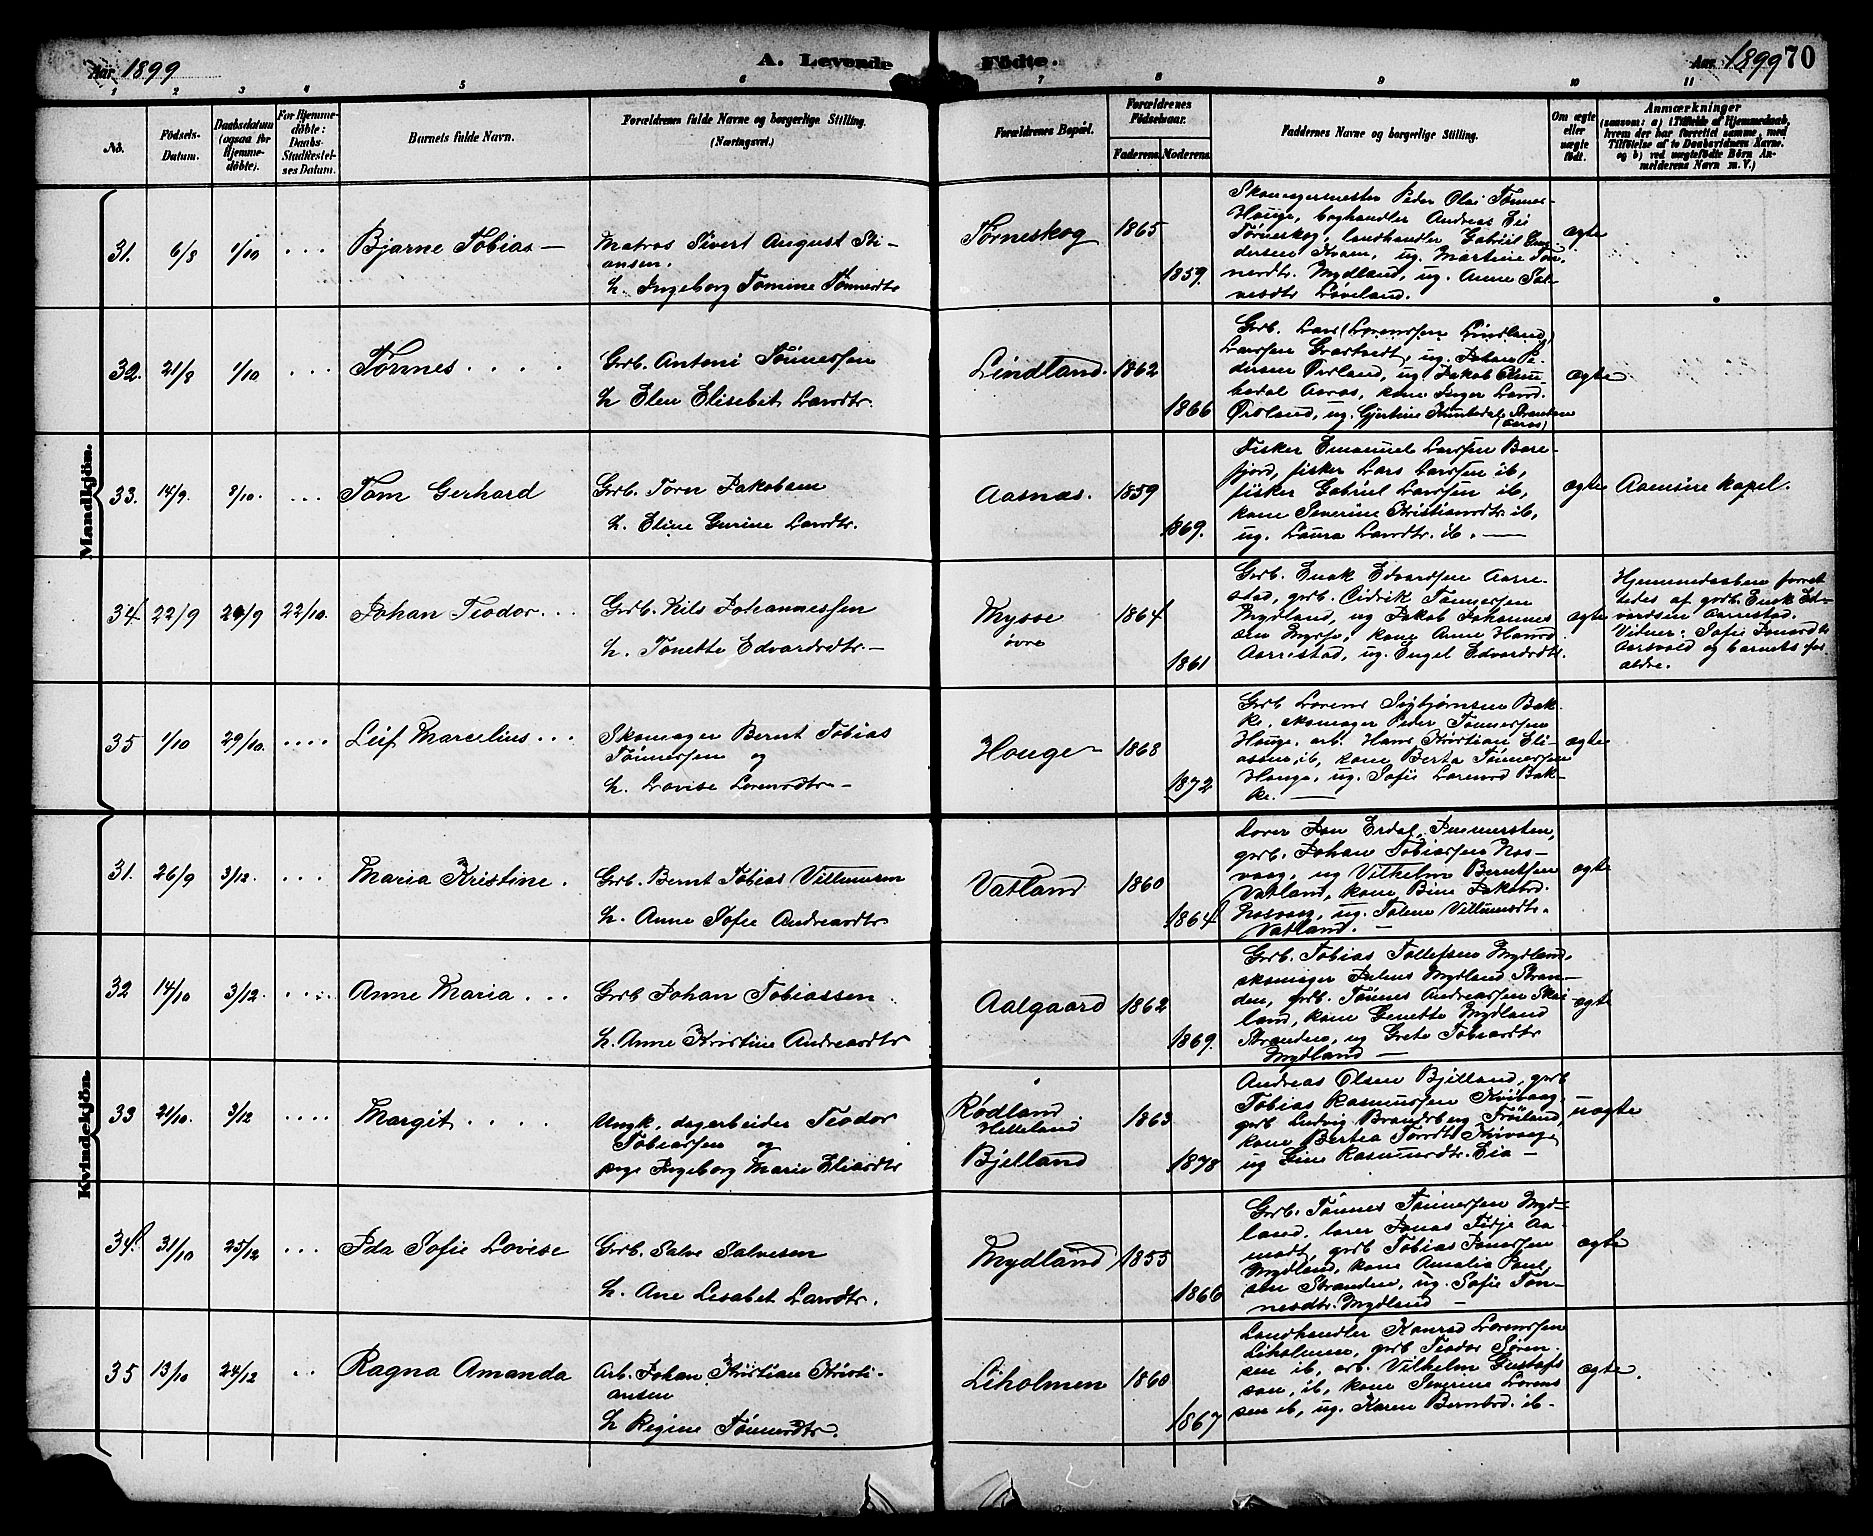 Aar 1899
A. Levende Födte.
Aar 1899 70
1 2 3 4 5 6 7 8 9 10 11
No.
Födsels-Datum.
Daabsdatum (ogsaa for Hjemmedöbte).
For Hjemmedöbte: Daabs-Stadfæstelses Datum.
Barnets fulde Navn.
Forældrenes fulde Navne og borgerlige Stilling. (Næringsvei.)
Forældrenes Bopæl.
Forældrenes Födselsaar.
Faderens. Moderens.
Faddernes Navne og borgerlige Stilling.
Om ægte eller uægte født.
Anmærkninger
(saasom: a) i Tilfælde af Hjemmedaab, hvem der har forrettet samme, med Tilföielse af to Daabsvidners Navne, og b) ved uægtefödte Börn Anmelderens Navn m. V.)
Mandkjön.
31. 6/8 1/10 ... Bjarne Tobias —
Matros Sivert August Sti-
ansen.
h. Ingeborg Tomine Tönnesdtr
Törneskog 1865 1859.
Skomagermester Peder Olai Tönnes-
Houge, boghandler Andreas Eie
Törneskog, landhandler Gabriel
dersen Kvam, ug. Martine Tön-
nesdtr. Mydland, ug. Anne Sal-
vesdtr Löveland.
ægte
32. 21/8 1/10 ... Tönnes ....
Grb. Antoni Tönnessen
h Elen Elisebet Larsdtr.
Lindland. 1862 1866
Grb. Lars (Lorenssen Lindland)
Larssen ug. Johan Pe-
dersen ug. Jakob
Aaros, kone Inger Larsd.
ug. Gjertine Stranden
(Aaros)
ægte
33. 14/9. 8/10. ... Tom Gerhard
Grb. Torn Jakobsen
h. Eline Gurine Larsdtr.
Aasnas. 1859 1869.
Fisker Emanuel Larssen Bare-
fjord, fisker Lars Larssen ib,
fisker Gabriel Larssen ib,
kone Severine Kristiansdtr. ib,
ug. Laura Larsdtr. ib. —
ægte Aamsire kapel.
34 22/9 24/9 22/10. Johan Teodor ...
Grb. Nils Johannessen
h. Tonette Edvardsdtr. —
Mysse
övre
1864 1861
Grb. Enok Edvardsen Aarre-
stad, grb. Didrik Tönnessen
Mydland, ug Jakob Johannes
sen Mysse, kone Anne Hansd.
Aarrestad, ug. Engel Edvardsdtr.
ægte
Hjemmedaaben forret-
tedes af grb. Enok Ed-
vardsen Aarrestad.
Vidner: Sofie
og barnets for-
ældre.
35 1/10 29/10. .... Leif Marcelius ...
Skomager Bernt Tobias
Tönnessen og
h. Lovise Lorensdtr —
Houge 1868 1872
Grb Lorens Sigbjörnsen Bak-
ke, skomager Peder Tönnessen
Houge, arb. Hans Kristian Eli-
assen ib, kone Berta Tönnessen
Houge, ug. Sofie Lorensd Bak-
ke. —
ægte
Kvindekjön.
31. 26/9 3/12. ... Maria Kristine.
Grb. Bernt Tobias Villumsen
h. Anne Sofie Andreasdtr
Vatland 1860 1864
Lærer Jan Erdal,
grb. Johan Tobiassen Nos-
vaag, ug Vilhelm Berntsen
Vatland, kone Bine Jakobsd.
Nosvaag, ug. Talene Villumsdtr.
Vatland. —
ægte
32 14/10 3/12. .... Anne Maria ...
Grb Johan Tobiassen
h. Anne Kristine Andreasdtr
Aalgaard 1862 1869.
Grb. Tobias Tollefsen Mydland,
skomager Julius Mydland Stran-
den, grb. Tönnes Andreassen Skei-
land, kone Genette Mydland
Stranden, ug Grete Tobiasdtr
Mydland —
ægte
33 21/10. 3/12 .... Margit ....
Ungk. dagarbeider Teodor
Tobiassen og
pige Ingeborg Marie Eliasdtr
Rödland
Helleland.
Bjelland
1863 1878
Andreas Olsen Bjelland, grb
Tobias Rasmussen
grb Ludvig Brandsberg Tröiland,
kone Bertea
ug Sine Rasmusdtr. Eia —
uægte
34. 31/10 25/12 ... Ida Sofie Lovise
Grb. Salve Salvesen
h. Ane Lisabet Larsdtr.
Mydland 1855 1866
Grb. Tönnes Tönnessen Myd-
land, lærer Jonas Aa-
modt, grb Tobias Jonassen
Mydland, kone Amalia Paul-
sen Stranden, ug. Sofie Tön-
nesdtr. Mydland —
ægte
35 13/10 24/12 .. Ragna Amanda
Arb. Johan Kristian Kristi-
ansen
h Regine Tönnesdtr.
Liholmen 1860 1867
Landhandler Konrad Lorenssen
Liholmen, grb Teodor Sören-
sen ib, arb. Vilhelm Gustafs
son, ib, kone Severine Lorens
sen ib, ug. Karen Berntsd. ib —
ægte.